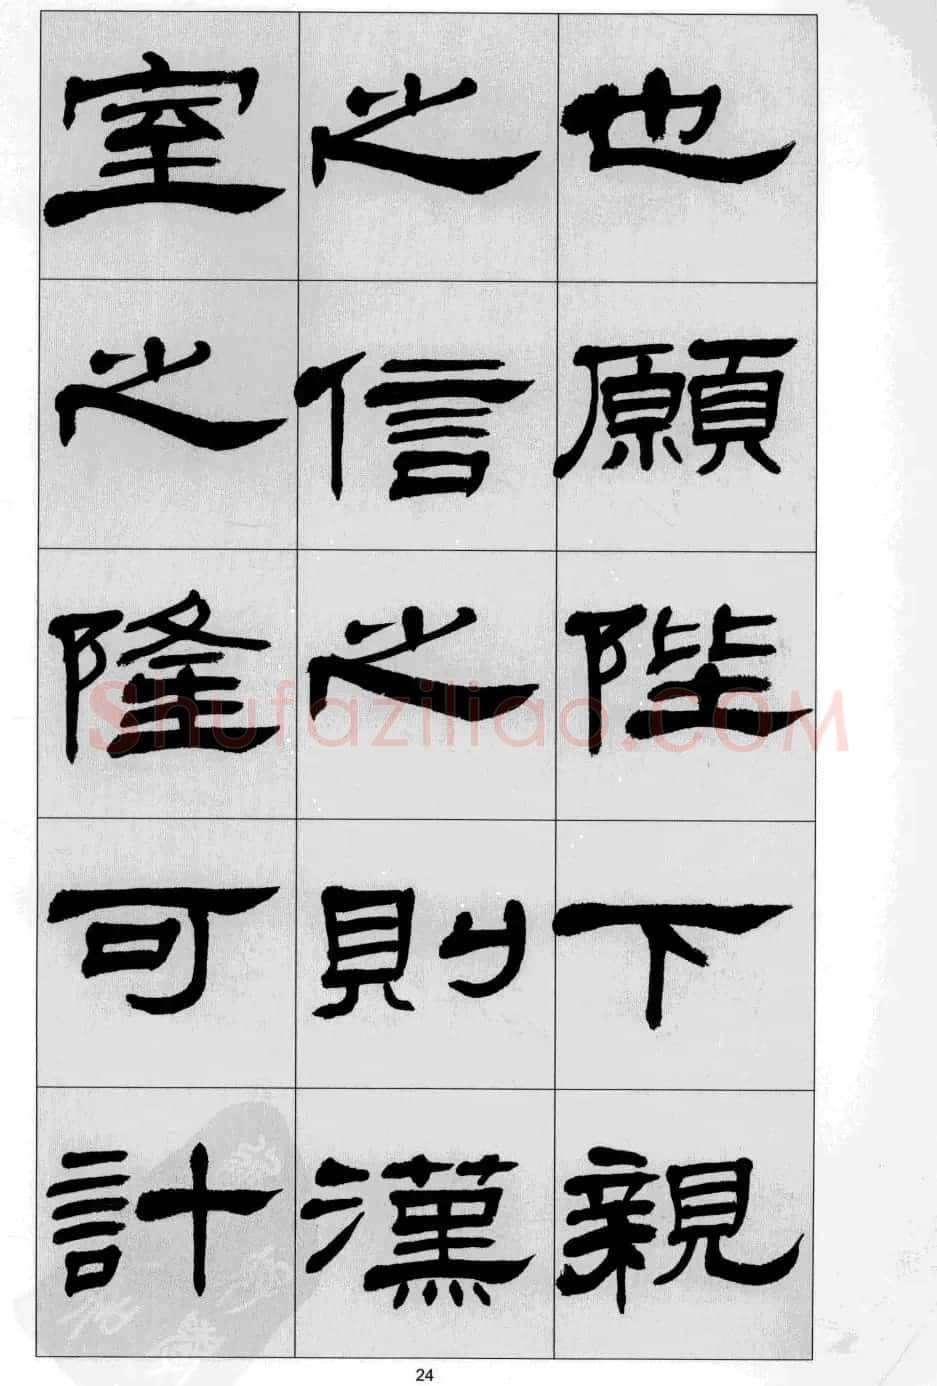 也願陛下親
之信之則漢
室之隆可計
Shufaziliao.COM
24